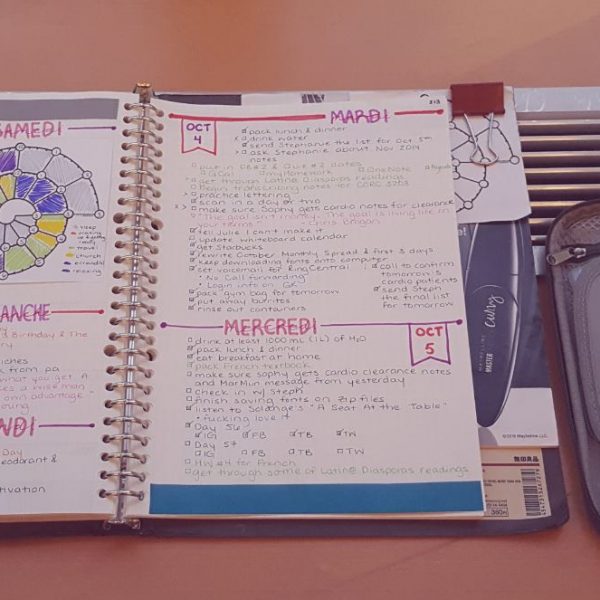 SAMEDI
sleep
church
errands
relaxing
ANCHE
Birthday & The
iches
from pa
what you get. A
a wise man
own advantage
NDI
Day
eodorant &
tivation
MARDI
213
OCT
4
pack lunch & dinner
drink water
send Stephanie the list for Oct 5th
ask Stephanie about Nov 2014
notes
put in DB#2 & Quiz #2 dates
GCal
myHomework
OneNote
get through Latin@ Diasporas readings
begin transcribing notes for CORD 5203
practice lettering
scan in a day or two
make sure Sophy gets cardio notes for clearance
"The goal isn't money. The goal is living life on
your terms." - Chris Brogan
tell Julie I can't make it
update whiteboard calendar
get Starbucks
rewrite October Monthly Spread & first 3 days
keep downloading fonts onto computer
set voicemail for RingCentral
• No Call Forwarding
• Login info on GC
pack gym bag for tomorrow
put away burritos
rinse out containers
call to confirm
tomorrow's
cardio patients
send Steph
the final list
for tomorrow
MERCREDI
OCT
5
drink at least 1000 mL (1L) of H2O
pack lunch & dinner
eat breakfast at home
pack French textbook
make sure Sophy gets cardio clearance notes
and MarMun message from yesterday
check in w/ Steph
finish saving fonts on zip files
listen to Solange's "A Seat At the Table"
• fucking love it
Day 56
IG FB TB TW
Day 57
IG FB TB TW
HW #4 for French
get through some of Latin@ Diasporas readings
MAYBELLINE
MASTER
Curvy
©2015 Maybelline LLC.
無印良品